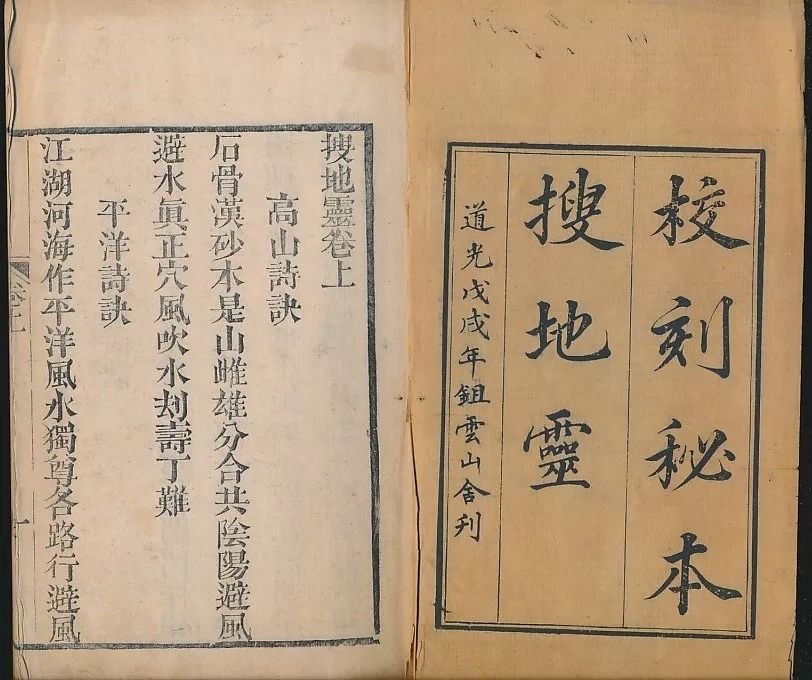 校刻秘本
搜地靈
道光戊戌年鉏雲山舍刋
搜地靈卷上
高山詩訣
石骨漢砂本是山雌雄分合共陰陽避風
避水眞正穴風吹水刦壽丁難
平洋詩訣
江湖河海作平洋風水獨尊各路行避風